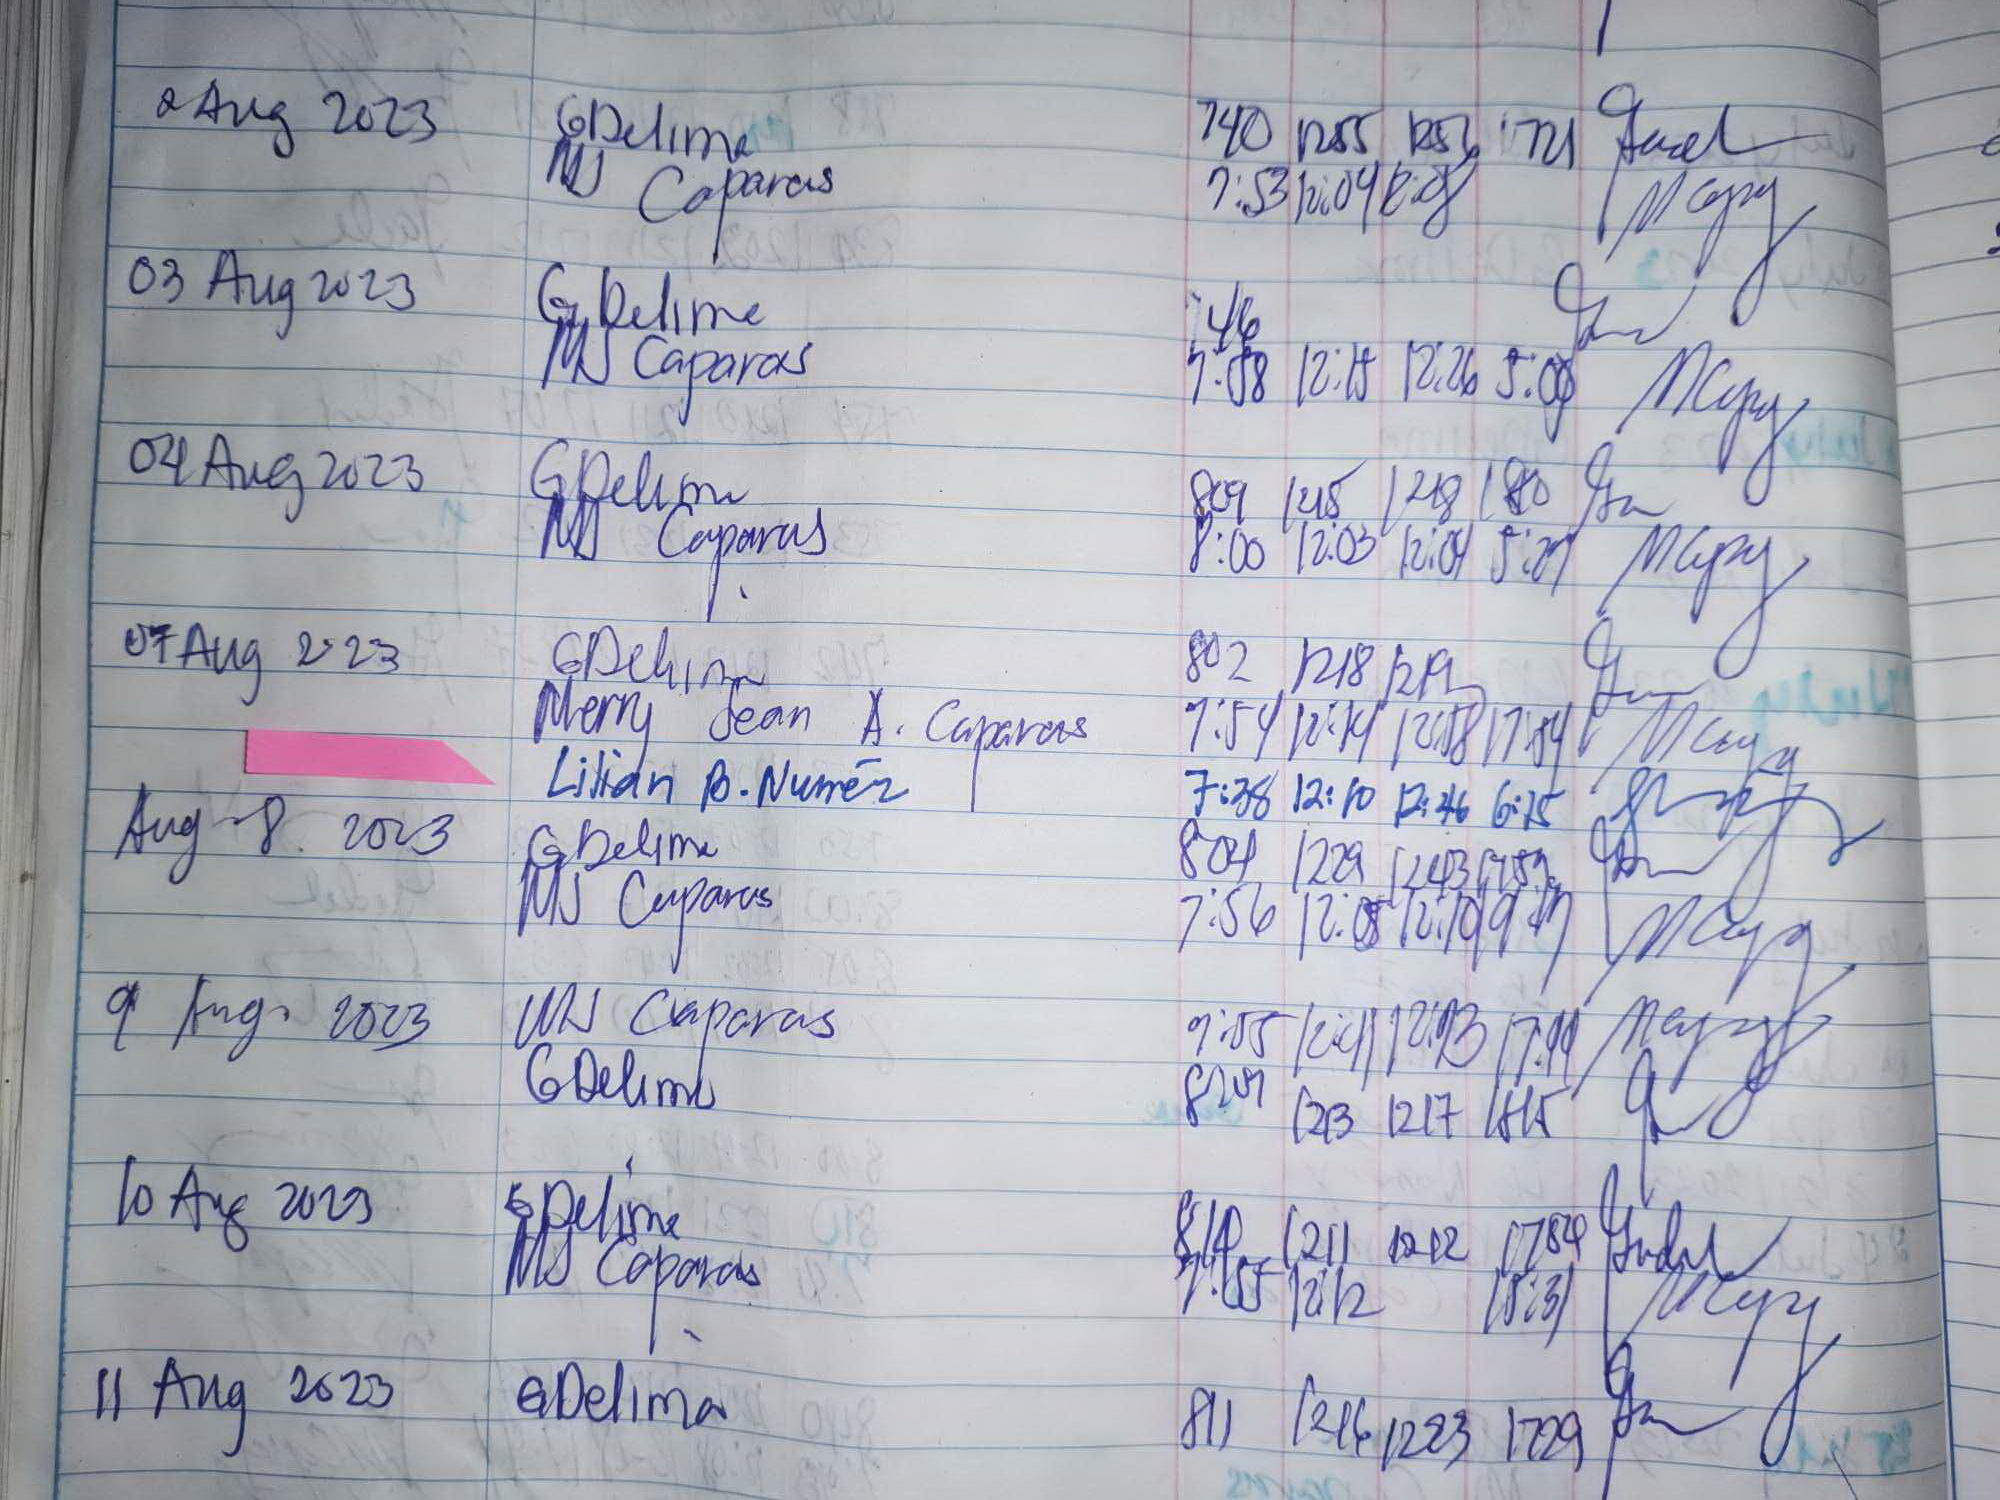 2 Aug 2023 GDelima 740 1255 1256 1721
MJ Caparas 7:53 12:04 12:08
03 Aug 2023 G Delima 746
MJ Caparas 7:58 12:15 12:26 5:00
04 Aug 2023 GDelima 809 1215 1218
MJ Caparas 8:00 12:03 12:04 5:27
07 Aug 2023 GDelima 802 1218 1219
Merry Jean A. Caparas 7:54 12:14 12:58 17:54
Lilian B. Numer 7:38 12:10 12:46 6:15
Aug 8. 2023 GDelima 804 1229 1243
MJ Caparas 7:56 12:05 12:10
9 Aug. 2023 MJ Caparas 7:55 12:41 12:43 17:44
GDelima 1213 1217 1815
10 Aug 2023 GDelima 810 1211 1212 1754
MJ Caparas 7:55 12:12 18:31
11 Aug 2023 GDelima 811 1216 1223 1729